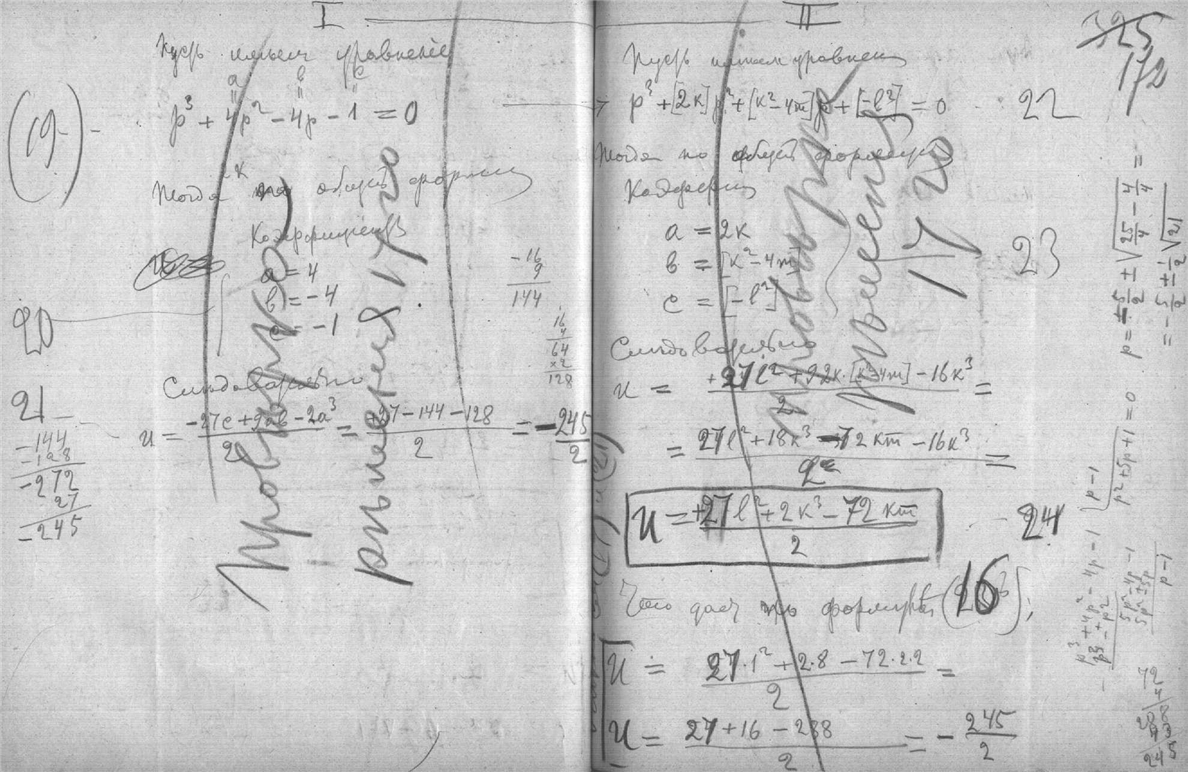 I
Пусть имеем уравнение
a b c
p³ + 4p² - 4p - 1 = 0
(19)
2к
Тогда по общей формуле
Коэффициенты
a = 4
b = -4
c = -1
20
Следовательно
21
u = (-27c + 9ab - 2a³)/2 = (+27 - 144 - 128)/2 = -245/2
-144
-128
-272
27
-245
-16
9
144
16
4
64
×2
128
Проверка
решения 17го
II
325
172
Пусть имеем уравнение
p³ + [2к]p² + [к² - 4m]p + [-l²] = 0 22
Тогда по общей формуле
a = 2к
b = [к² - 4m] 23
c = [-l²]
Следовательно
u = (+27l² + 92к·[к² - 4m] - 16к³)/2 =
= (27l² + 18к³ - 72кm - 16к³)/2 =
u = (+27l² + 2к³ - 72кm)/2 24
Что дает по формуле (16);
u = (27·1² + 2·8 - 72·2·2)/2 =
u = (27 + 16 - 288)/2 = -245/2
Проверка
решения
17го
p = -5/2 ± √(25/4 - 4/4) =
= -5/2 ± 1/2 √21
p³ + 4p² - 4p - 1 | p - 1
p² + 5p + 1 = 0
p³ - p²
5p² - 4p - 1
5p² - 5p
p - 1
72
4
288
43
245